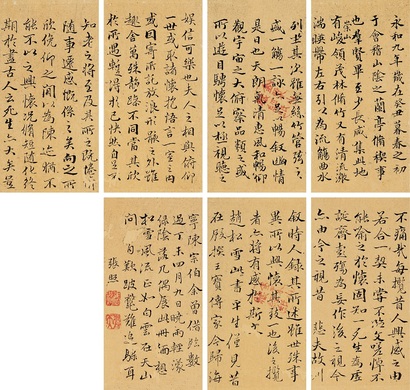 永和九年歲在癸丑暮春之初
于會稽山陰之蘭亭脩稧事
也羣賢畢至少長咸集此地
有崇山峻領茂林脩竹又有清流激
湍暎帶左右引以為流觴曲水
列坐其次雖無絲竹管弦之
盛一觴一詠亦足以暢叙幽情
是日也天朗氣清惠風和暢仰
觀宇宙之大俯察品類之盛
所以遊目騁懷足以極視聽之
娛信可樂也夫人之相與俯仰
一世或取諸懷抱悟言一室之內
或因寄所託放浪形骸之外雖
趣舍萬殊靜躁不同當其欣
於所遇暫得於己快然自足不
知老之將至及其所之既惓情
隨事遷感慨係之矣向之所
欣俛仰之間以為陳迹猶不
能不以之興懷況脩短隨化終
期於盡古人云死生亦大矣豈
不痛哉每攬昔人興感之由
若合一契未嘗不臨文嗟悼不
能喻之於懷固知一死生為虛
誕齊彭殤為妄作後之視今
亦由今之視昔悲夫故列
敘時人錄其所述雖世殊事
異所以興懷其致一也後之攬
者亦將有感於斯文
趙松雪此書平生僅見昔
在王家今歸海
寧陳宗伯余曾借臨數
過丁未四月九日曉雨輕寒
綠陰落几偶展此冊想
松雪風流正如白雲在天山
間歎跛鼈難追騄耳
張照